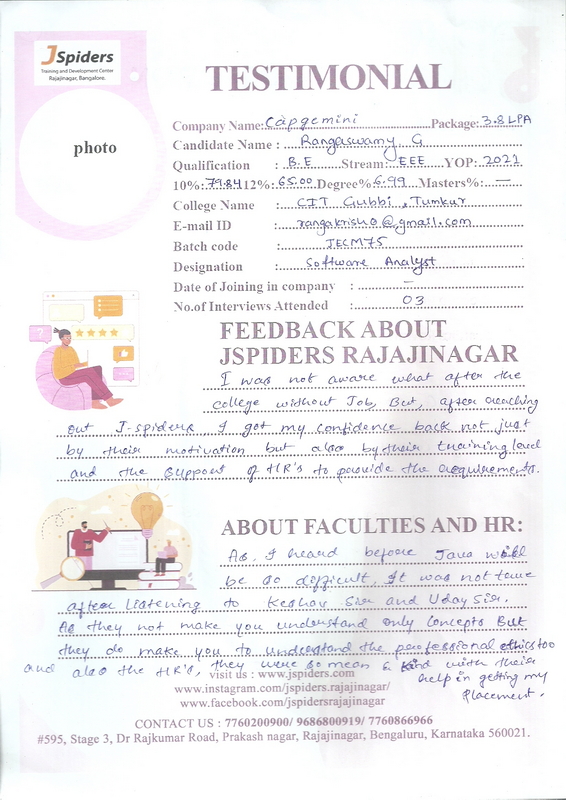 JSpiders
Training and Development Center
Rajajinagar, Bangalore.
TESTIMONIAL
photo
Company Name: Capgemini Package: 3.8 LPA
Candidate Name : Rangaswamy. G
Qualification : B.E Stream: EEE YOP: 2021
10%: 79.84 12%: 65.00 Degree% 6.99 Masters%: —
College Name : CIT Gubbi, Tumkur
E-mail ID : @gmail.com
Batch code : JECM75
Designation : Software Analyst
Date of Joining in company : –
No.of Interviews Attended : 03
FEEDBACK ABOUT
JSPIDERS RAJAJINAGAR
I was not aware what after the
college without Job, But, after reaching
out J-spiders I got my confidence back not just
by their motivation but also by their training level
and the support of HR's to provide the requirements.
ABOUT FACULTIES AND HR:
As, I heard before Java will
be so difficult, It was not true
after listening to Keshav Sir and Uday Sir.
As they not make you understand only concepts But
they do make you to understand the professional ethics too
and also the HR's, they were so mean & kind with their
help in getting my
Placement.
visit us : www.jspiders.com
www.instagram.com/jspiders.rajajinagar/
www.facebook.com/jspidersrajajinagar
CONTACT US : 7760200900/ 9686800919/ 7760866966
#595, Stage 3, Dr Rajkumar Road, Prakash nagar, Rajajinagar, Bengaluru, Karnataka 560021.